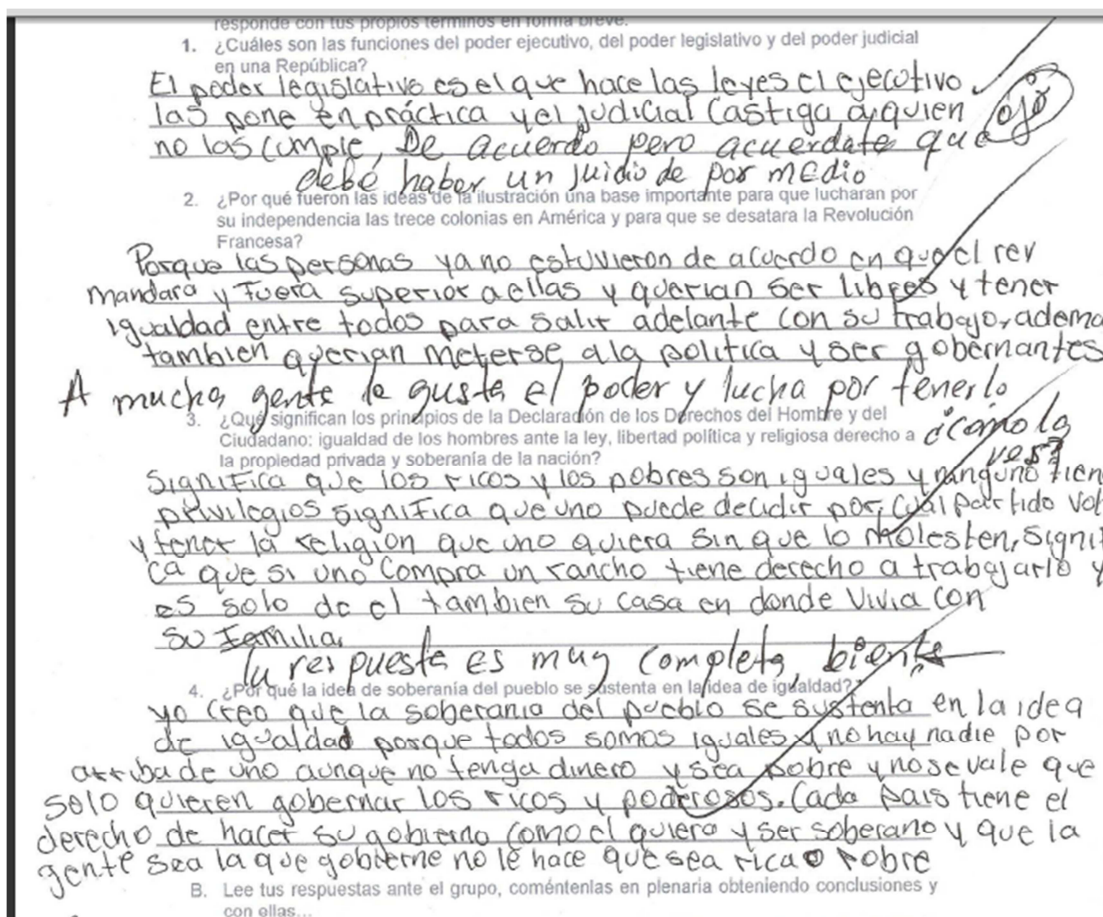 responde con tus propios términos en forma breve.
1. ¿Cuáles son las funciones del poder ejecutivo, del poder legislativo y del poder judicial
en una República?
El poder legislativo es el que hace las leyes el ejecutivo
las pone en práctica y el judicial castiga a quien ojo
no las cumple, De acuerdo pero acuerdate que
debe haber un juicio de por medio
2. ¿Por qué fueron las ideas de la ilustración una base importante para que lucharan por
su independencia las trece colonias en América y para que se desatara la Revolución
Francesa?
Porque las personas ya no estuvieron de acuerdo en que el rey
mandara y fuera superior a ellas y querian ser libres y tener
igualdad entre todos para salir adelante con su trabajo, adema
tambien querian meterse a la politica y ser gobernantes
A mucha gente le gusta el poder y lucha por tenerlo
3. ¿Qué significan los principios de la Declaración de los Derechos del Hombre y del
Ciudadano: igualdad de los hombres ante la ley, libertad política y religiosa derecho a
¿cómo la
la propiedad privada y soberanía de la nación?
ves?
Significa que los ricos y los pobres son iguales y ninguno tien
privilegios significa que uno puede decidir por cual partido vot
y tener la religion que uno quiera sin que lo molesten, signi
ca que si uno compra un rancho tiene derecho a trabajarlo y
es solo de el tambien su casa en donde vivia con
su familia
Tu respuesta es muy completa,
4. ¿Por qué la idea de soberanía del pueblo se sustenta en la idea de igualdad?
yo creo que la soberania del pueblo se sustenta en la idea
de igualdad porque todos somos iguales y no hay nadie por
arriba de uno aunque no tenga dinero y sea pobre y no se vale que
solo quieren gobernar los ricos y poderosos. Cada pais tiene el
derecho de hacer su gobierno como el quiera y ser soberano y que la
gente sea la que gobierne no le hace que sea rica o pobre
B. Lee tus respuestas ante el grupo, coméntenlas en plenaria obteniendo conclusiones y
con ellas...